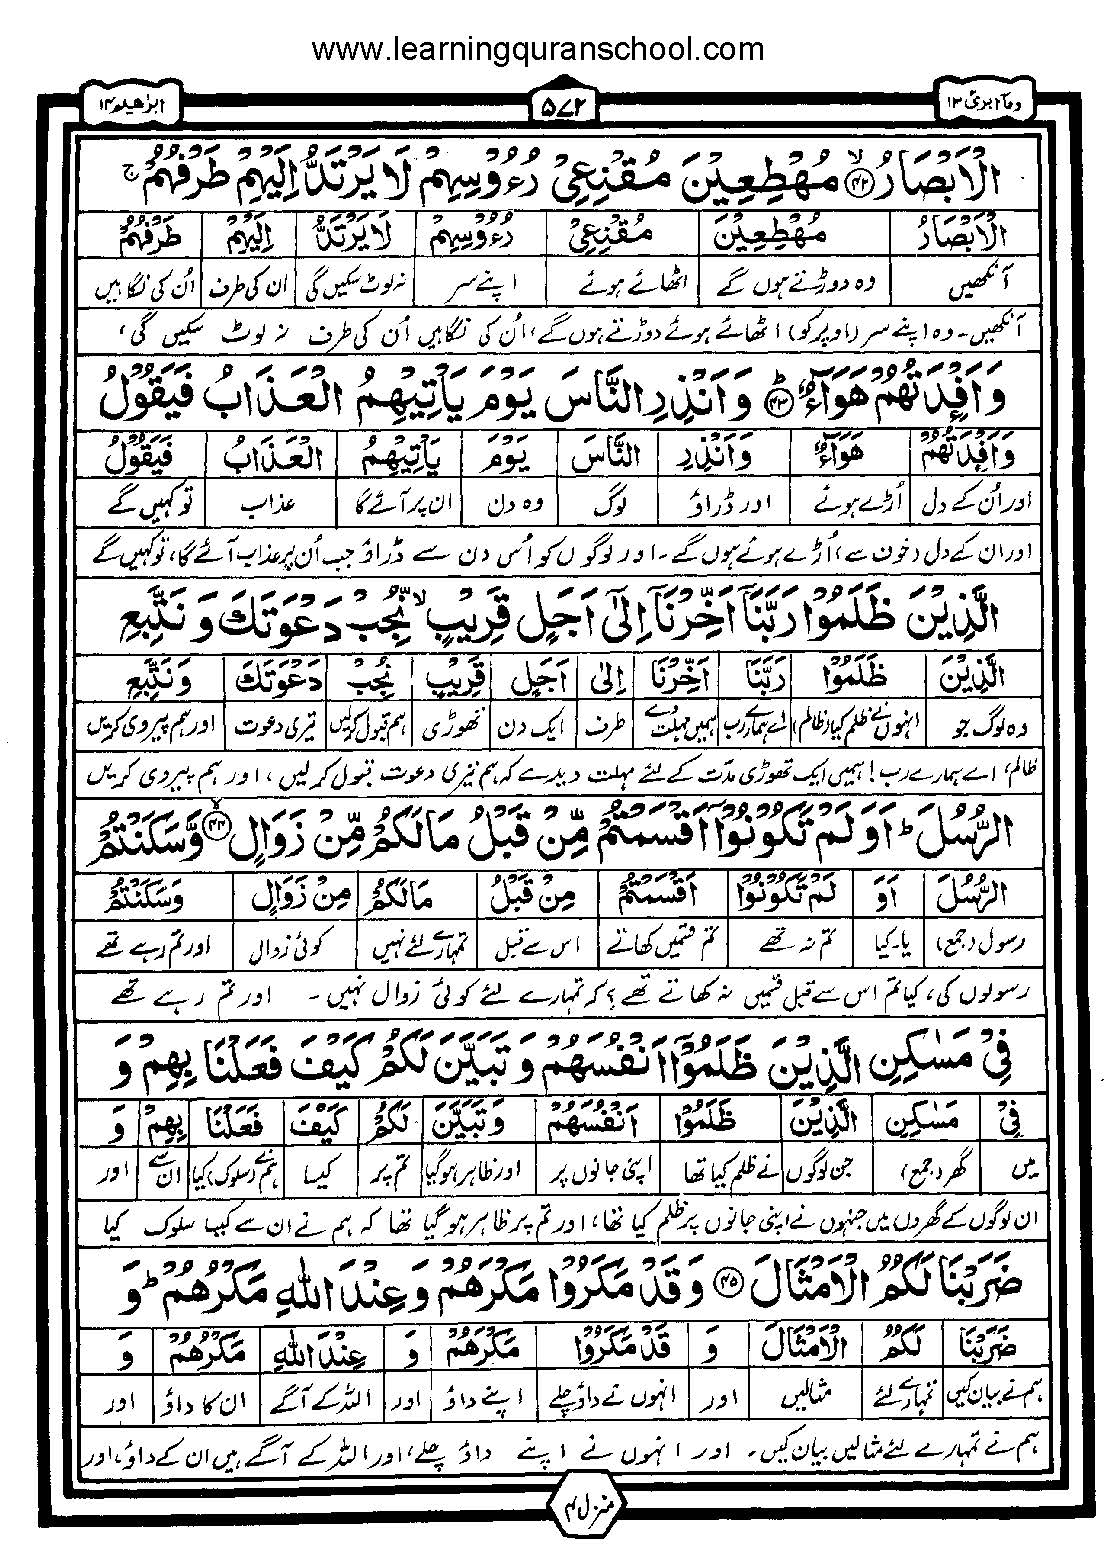 www.learningquranschool.com
وما ابرئ ۱۳
۵۷۲
ابراهیم ۱۴
الْاَبْصَارُ ۙ﴿۴۲﴾ مُهْطِعِيْنَ مُقْنِعِيْ رُءُوْسِهِمْ لَا يَرْتَدُّ اِلَيْهِمْ طَرْفُهُمْ ۚ
الْاَبْصَارُ مُهْطِعِيْنَ مُقْنِعِيْ رُءُوْسِهِمْ لَا يَرْتَدُّ اِلَيْهِمْ طَرْفُهُمْ
آنکھیں وہ دوڑتے ہوں گے اٹھائے ہوئے اپنے سر نہ لوٹ سکیں گی ان کی طرف اُن کی نگاہیں
آنکھیں۔ وہ اپنے سر (اوپر کو) اٹھائے ہوئے دوڑتے ہوں گے، اُن کی نگاہیں اُن کی طرف نہ لوٹ سکیں گی،
وَاَفْـِٕدَتُهُمْ هَوَآءٌ ؕ﴿۴۳﴾ وَاَنْذِرِ النَّاسَ يَوْمَ يَاْتِيْهِمُ الْعَذَابُ فَيَقُوْلُ
وَاَفْـِٕدَتُهُمْ هَوَآءٌ وَاَنْذِرِ النَّاسَ يَوْمَ يَاْتِيْهِمُ الْعَذَابُ فَيَقُوْلُ
اور اُن کے دل اُڑے ہوئے اور ڈراؤ لوگ وہ دن ان پر آئے گا عذاب تو کہیں گے
اور ان کے دل (خوف سے) اُڑے ہوئے ہوں گے۔ اور لوگوں کو اُس دن سے ڈراؤ جب اُن پر عذاب آئے گا، تو کہیں گے
الَّذِيْنَ ظَلَمُوْا رَبَّنَاۤ اَخِّرْنَاۤ اِلٰۤى اَجَلٍ قَرِيْبٍ ۙ نُّجِبْ دَعْوَتَكَ وَنَتَّبِعِ
الَّذِيْنَ ظَلَمُوْا رَبَّنَا اَخِّرْنَا اِلٰى اَجَلٍ قَرِيْبٍ نُجِبْ دَعْوَتَكَ وَنَتَّبِعِ
وہ لوگ جو انہوں نے ظلم کیا (ظالم) اے ہمارے رب ہمیں مہلت دے طرف ایک دن تھوڑی ہم قبول کر لیں تیری دعوت اور ہم پیروی کریں
ظالم، اے ہمارے رب! ہمیں ایک تھوڑی مدت کے لئے مہلت دیدے کہ ہم تیری دعوت قبول کر لیں، اور ہم پیروی کریں
الرُّسُلَ ؕ اَوَلَمْ تَكُوْنُوْۤا اَقْسَمْتُمْ مِّنْ قَبْلُ مَا لَكُمْ مِّنْ زَوَالٍ ۙ﴿۴۴﴾ وَّسَكَنْتُمْ
الرُّسُلَ اَوَ لَمْ تَكُوْنُوْا اَقْسَمْتُمْ مِنْ قَبْلُ مَا لَكُمْ مِنْ زَوَالٍ وَسَكَنْتُمْ
رسول (جمع) یا۔کیا تم نہ تھے تم قسمیں کھاتے اس سے قبل تمہارے لئے نہیں کوئی زوال اور تم رہے تھے
رسولوں کی، کیا تم اس سے قبل قسمیں نہ کھاتے تھے؟ کہ تمہارے لئے کوئی زوال نہیں۔ اور تم رہے تھے
فِيْ مَسٰكِنِ الَّذِيْنَ ظَلَمُوْۤا اَنْفُسَهُمْ وَتَبَيَّنَ لَكُمْ كَيْفَ فَعَلْنَا بِهِمْ وَ
فِيْ مَسٰكِنِ الَّذِيْنَ ظَلَمُوْا اَنْفُسَهُمْ وَتَبَيَّنَ لَكُمْ كَيْفَ فَعَلْنَا بِهِمْ وَ
میں گھر (جمع) جن لوگوں نے ظلم کیا تھا اپنی جانوں پر اور ظاہر ہو گیا تم پر کیسا ہم نے (سلوک) کیا ان سے اور
ان لوگوں کے گھروں میں جنہوں نے اپنی جانوں پر ظلم کیا تھا، اور تم پر ظاہر ہو گیا تھا کہ ہم نے ان سے کیسا سلوک کیا
ضَرَبْنَا لَكُمُ الْاَمْثَالَ ﴿۴۵﴾ وَقَدْ مَكَرُوْا مَكْرَهُمْ وَعِنْدَ اللّٰهِ مَكْرُهُمْ ؕ وَ
ضَرَبْنَا لَكُمُ الْاَمْثَالَ وَ قَدْ مَكَرُوْا مَكْرَهُمْ وَ عِنْدَ اللّٰهِ مَكْرُهُمْ وَ
ہم نے بیان کیں تمہارے لئے مثالیں اور انہوں نے داؤ چلے اپنے داؤ اور اللہ کے آگے ان کا داؤ اور
ہم نے تمہارے لئے مثالیں بیان کیں۔ اور انہوں نے اپنے داؤ چلے، اور اللہ کے آگے ہیں ان کے داؤ، اور
منزل ۳